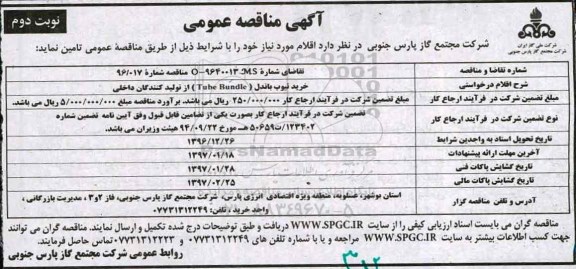 آگهی مناقصه عمومی
نوبت دوم
شرکت ملی گاز ایران
شرکت مجتمع گاز پارس جنوبی
شرکت مجتمع گاز پارس جنوبی در نظر دارد اقلام مورد نیاز خود را با شرایط ذیل از طریق مناقصة عمومی تامین نماید:
شماره تقاضا و مناقصه تقاضای شمارة MS: ۹۶۴۰۰۱۳-O مناقصه شمارة ۹۶/۰۱۷
شرح اقلام درخواستی خرید تیوب باندل ( Tube Bundle ) از تولید کنندگان داخلی
مبلغ تضمین شرکت در فرآیند ارجاع کار مبلغ تضمین شرکت در فرآیند ارجاع کار ۲۵۰/۰۰۰/۰۰۰ ریال می باشد. برآورد مناقصه مبلغ ۵/۰۰۰/۰۰۰/۰۰۰ ریال می باشد.
نوع تضمین شرکت در فرآیند ارجاع کار تضمین شرکت در فرآیند ارجاع کار بصورت یکی از تضامین قابل قبول وفق آیین نامه تضمین شماره
۱۲۳۴۰۲/ت۵۰۶۵۹هـ مورخ ۹۴/۰۹/۲۲ هیئت وزیران می باشد.
تاریخ تحویل اسناد به واجدین شرایط ۱۳۹۶/۱۲/۲۶
آخرین مهلت ارائه پیشنهادات ۱۳۹۷/۰۱/۱۸
تاریخ گشایش پاکات فنی ۱۳۹۷/۰۱/۲۸
تاریخ گشایش پاکات مالی ۱۳۹۷/۰۲/۲۵
آدرس و تلفن مناقصه گزار استان بوشهر، عسلویه، منطقه ویژه اقتصادی انرژی پارس، شرکت مجتمع گاز پارس جنوبی، فاز ۲و۳ ، مدیریت بازرگانی ،
واحد خرید ، تلفن: ۰۷۷۳۱۳۱۲۲۴۹
مناقصه گران می بایست اسناد ارزیابی کیفی را از سایت WWW.SPGC.IR دریافت و طبق توضیحات درج شده تکمیل و ارسال نمایند. مناقصه گران می توانند
جهت کسب اطلاعات بیشتر به سایت WWW.SPGC.IR مراجعه و یا با شماره تلفن های ۰۷۷۳۱۳۱۲۲۴۹ و ۰۷۷۳۱۳۱۲۲۲۳ تماس حاصل فرمایند.
روابط عمومی شرکت مجتمع گاز پارس جنوبی